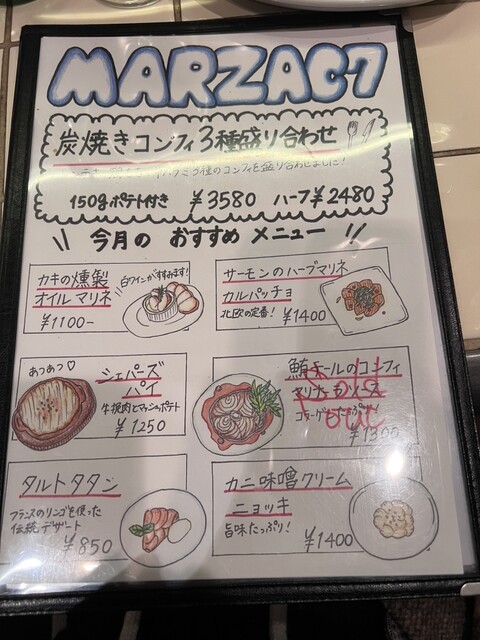 MARZAC7
炭焼きコンフィ3種盛り合わせ
3種のコンフィを盛り合わせました!
150gポテト付き ¥3580 ハーフ¥2480
\\ 今月の おすすめ メニュー //
カキの燻製
オイルマリネ
白ワインがすすみます!
¥1100-
サーモンのハーブマリネ
カルパッチョ
北欧の定番! ¥1400
あつあつ♡
シェパーズ
パイ
牛挽肉とマッシュポテト
¥1250
鮪テールのコンフィ
OUT
¥1300
タルトタタン
フランスのリンゴを使った
伝統デザート
¥850
カニ味噌クリーム
ニョッキ
旨味たっぷり!
¥1400